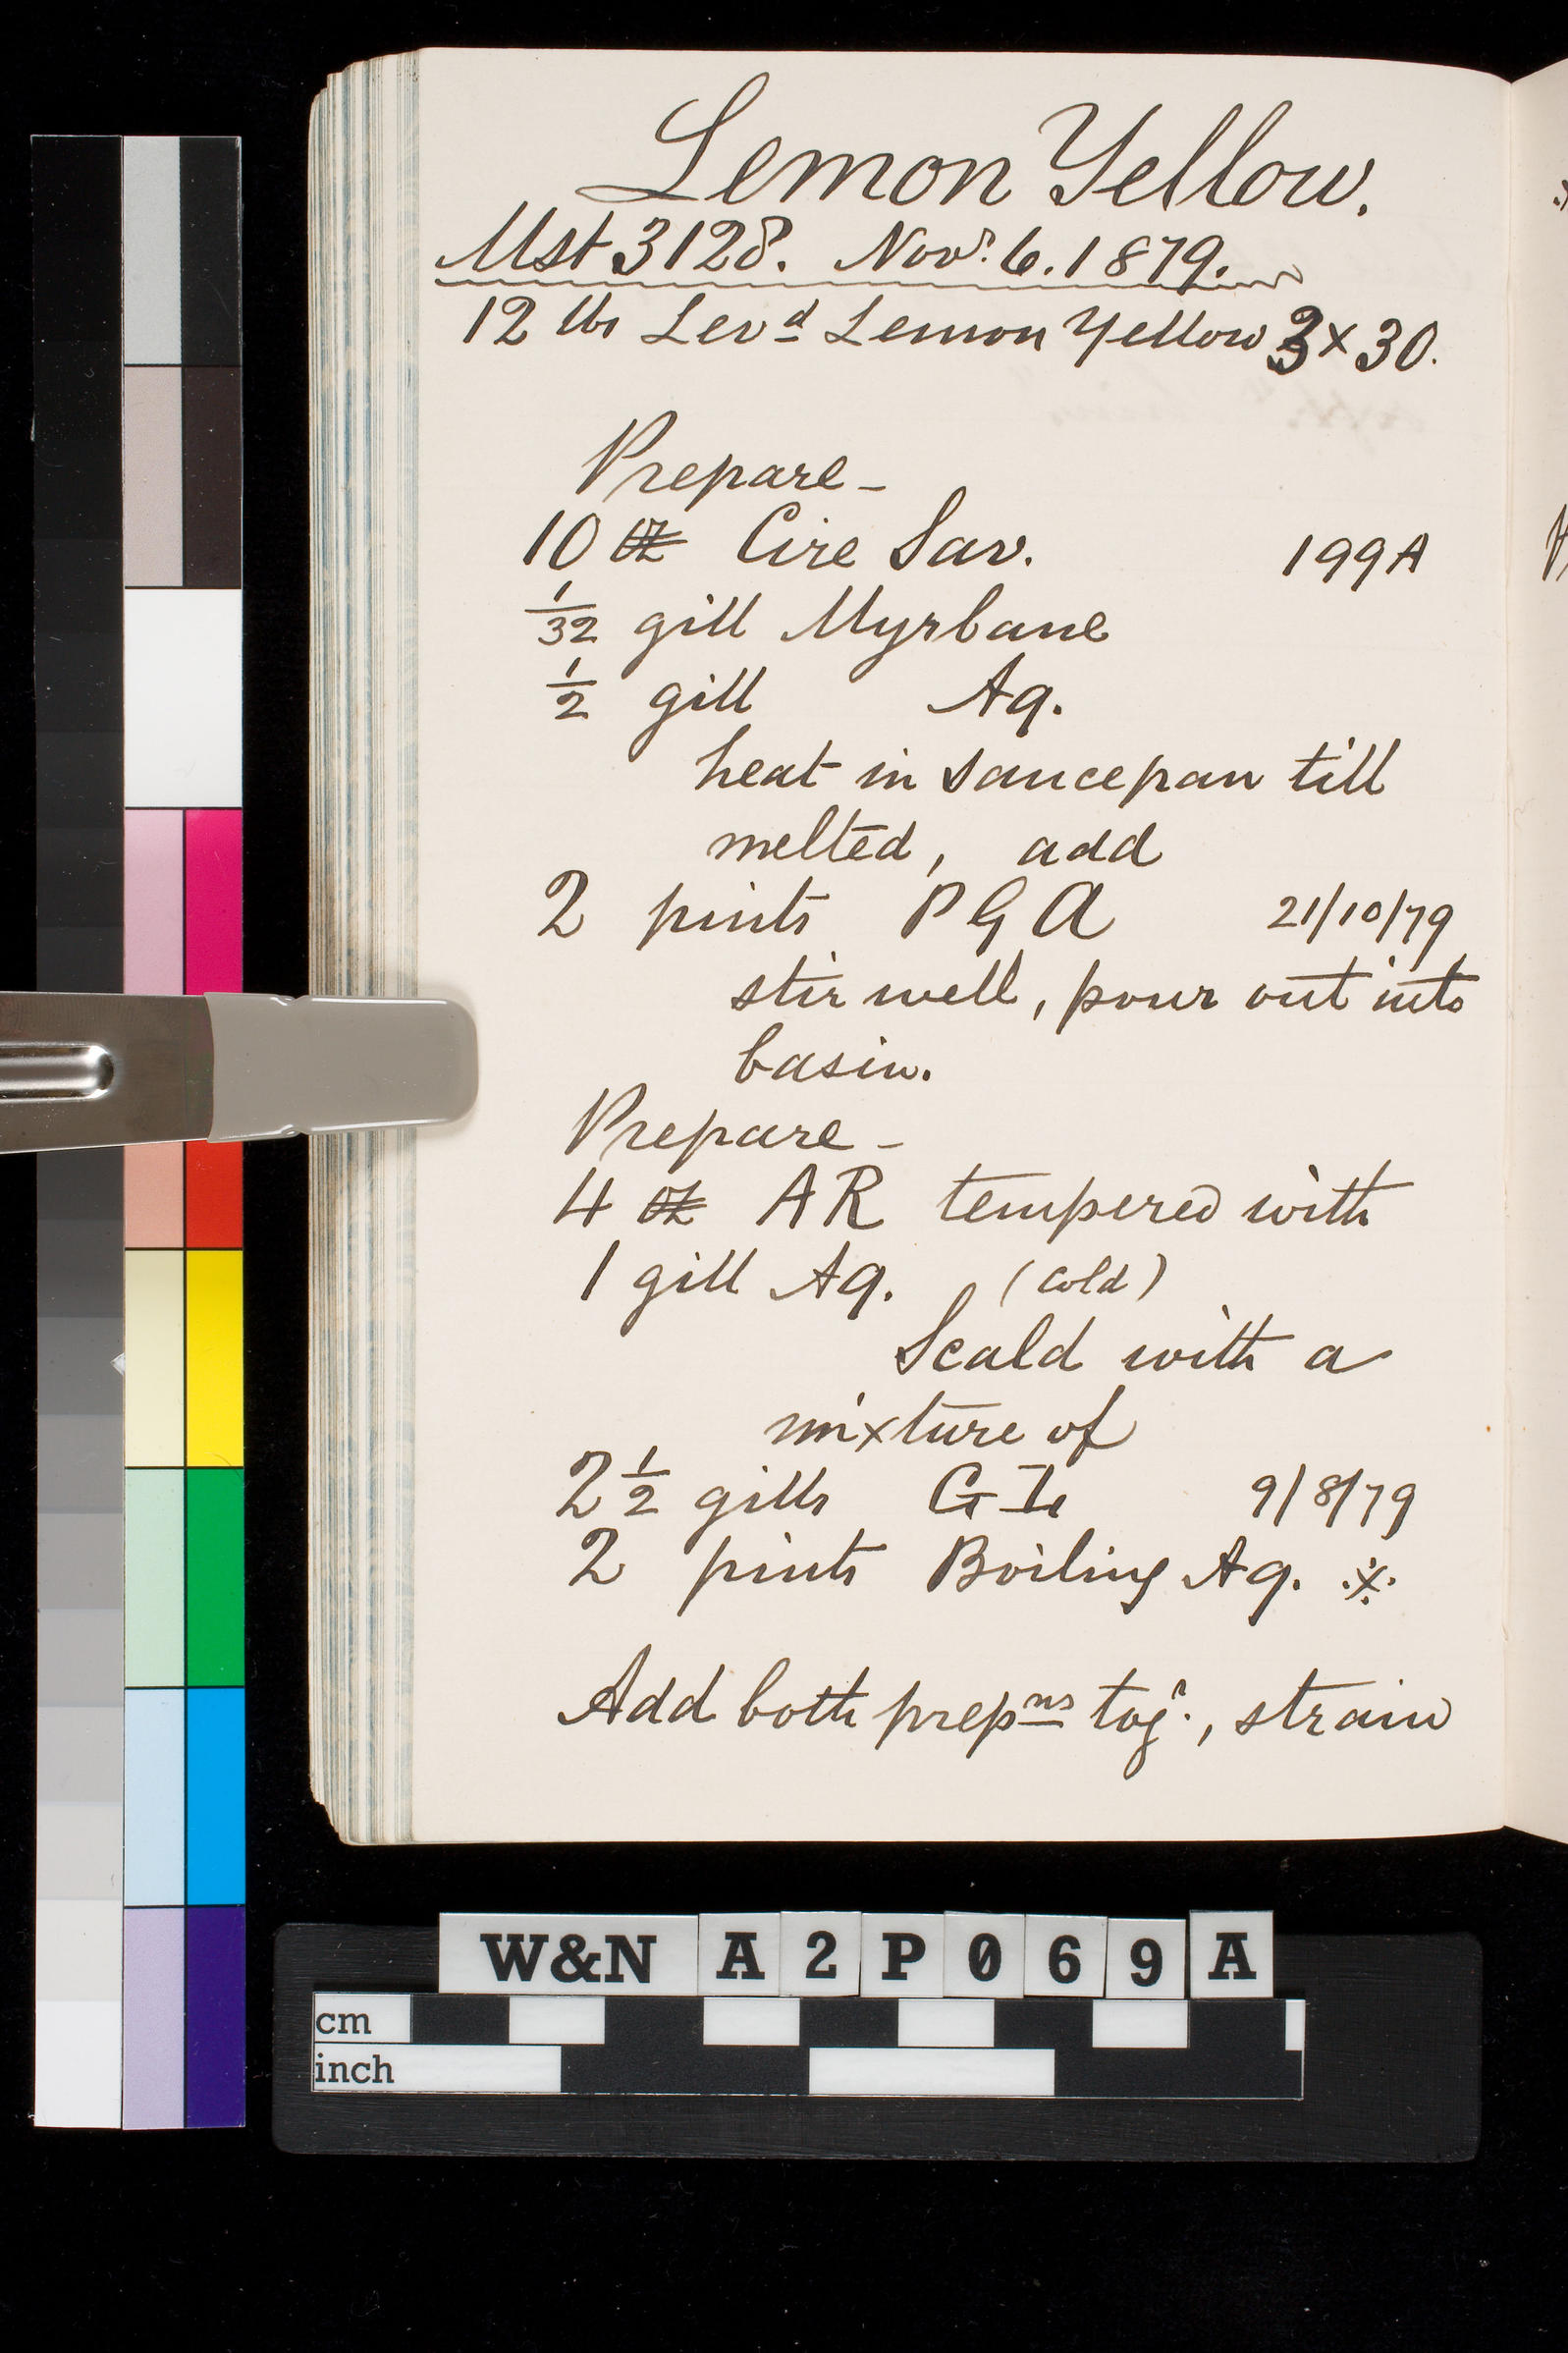 Lemon Yellow.
Mst 3128. Novr. 6. 1879.
12 lbs Levd Lemon Yellow 3 x 30.
Prepare -
10 oz Cire Sav. 199A
1/32 gill Myrbane
1/2 gill Aq.
heat in saucepan till
melted, add
2 pints P G A 21/10/79
stir well, pour out into
basin.
Prepare -
4 oz AR tempered with
1 gill Aq. (cold)
Scald with a
mixture of
2 1/2 gills 9/8/79
2 pints Boiling Aq. ※
Add both prepns togr., strain
W&N A2P069A
cm
inch